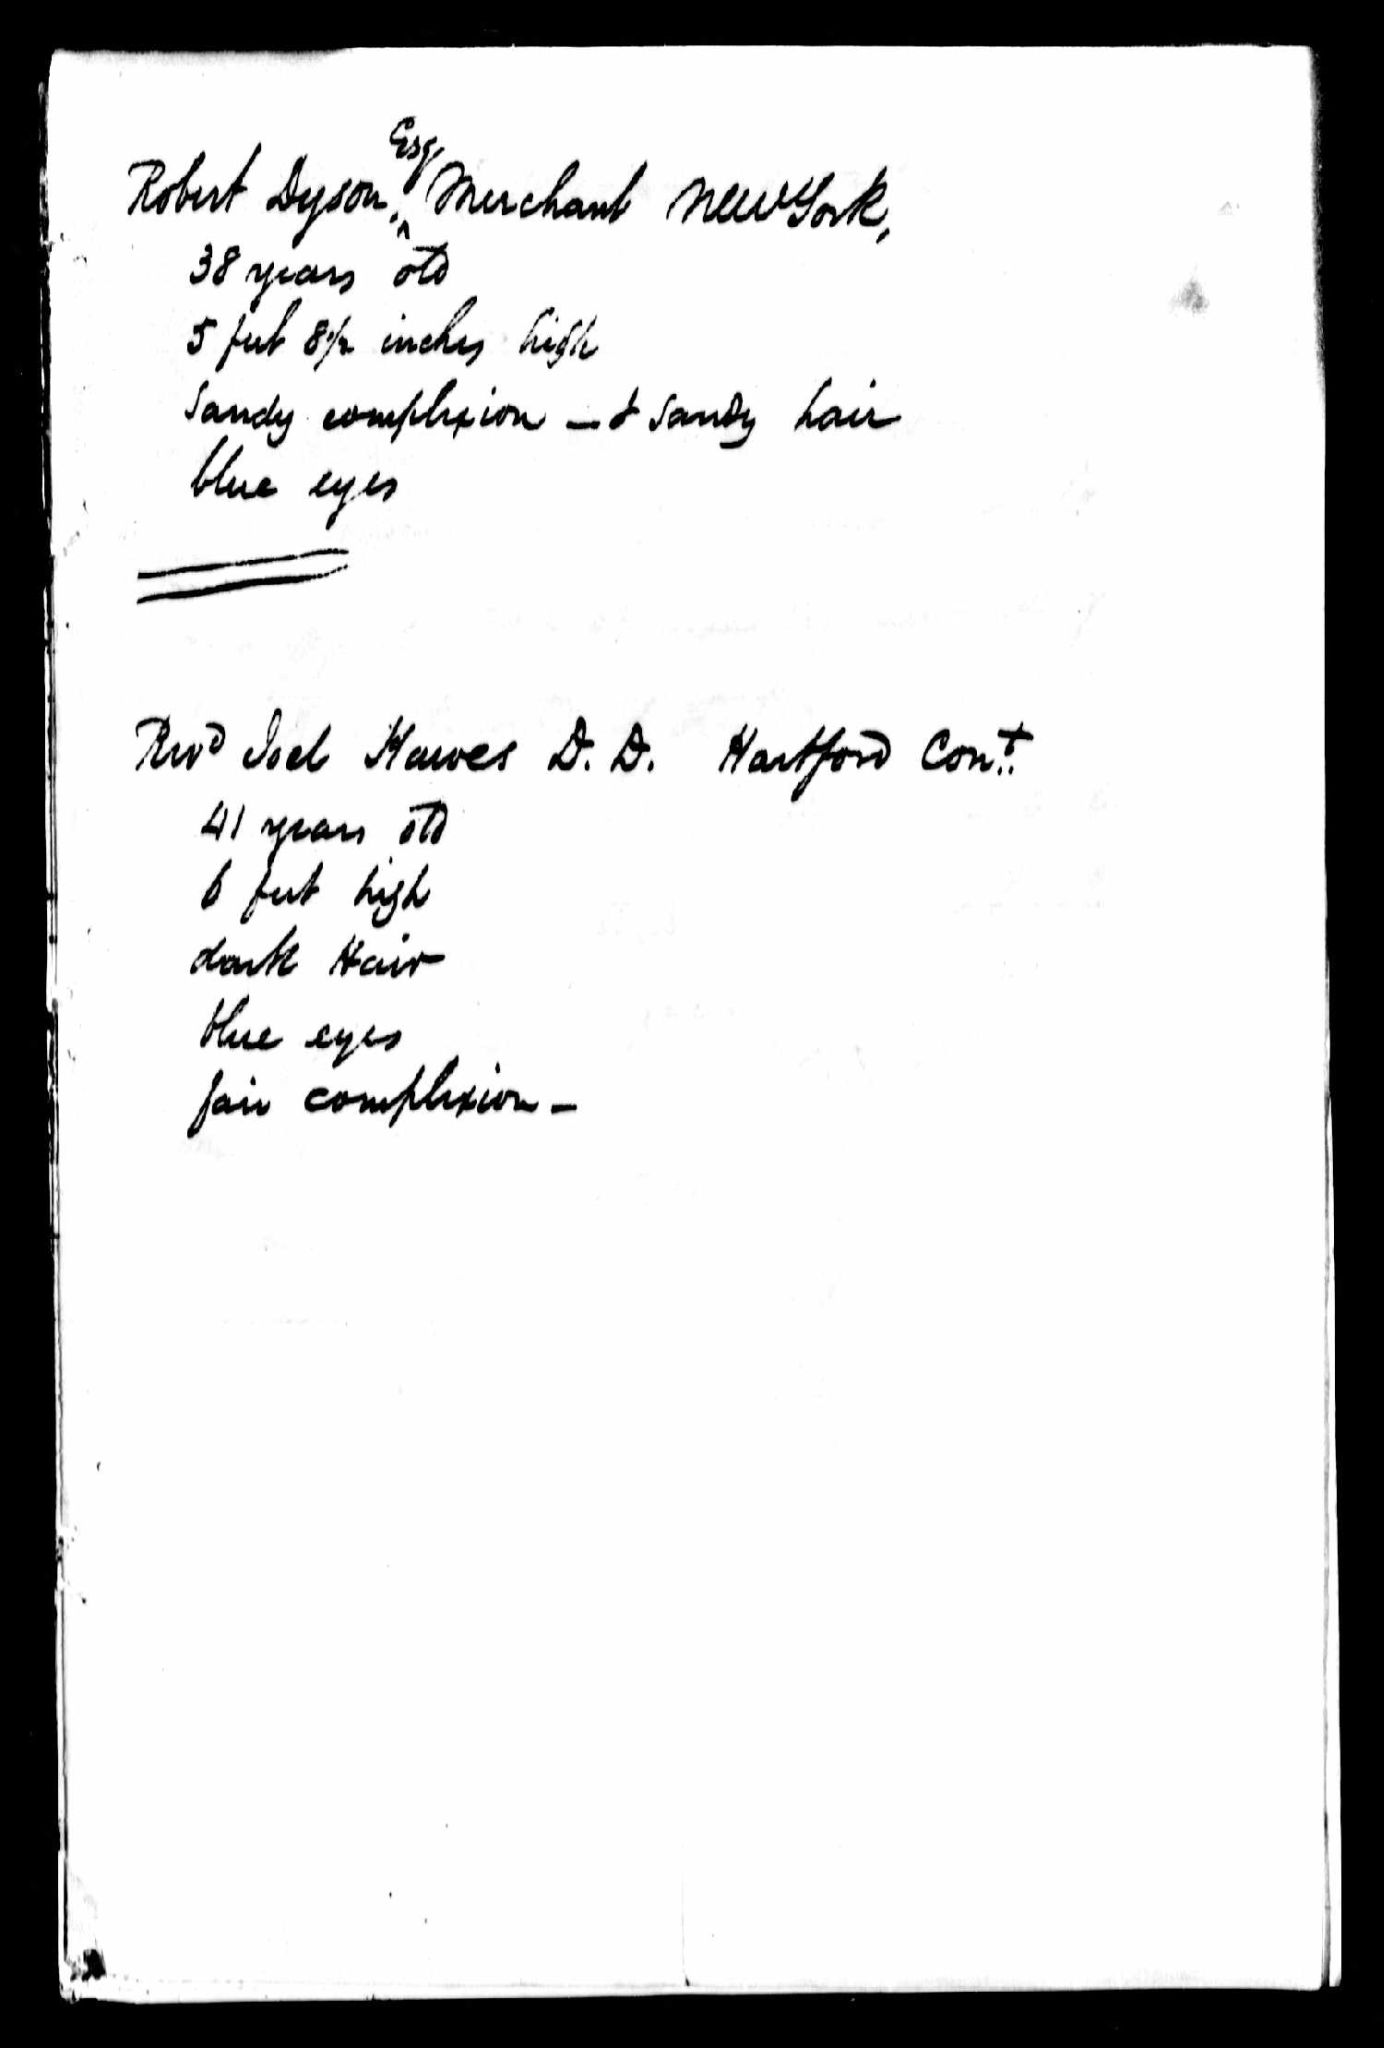 Robert Dyson, Esq, Merchant New York,
38 years old
5 feet 8 1/2 inches high
Sandy complexion - & Sandy hair
blue eyes
Revd Joel Hawes D. D. Hartford Cont.
41 years old
6 feet high
dark Hair
blue eyes
fair complexion -